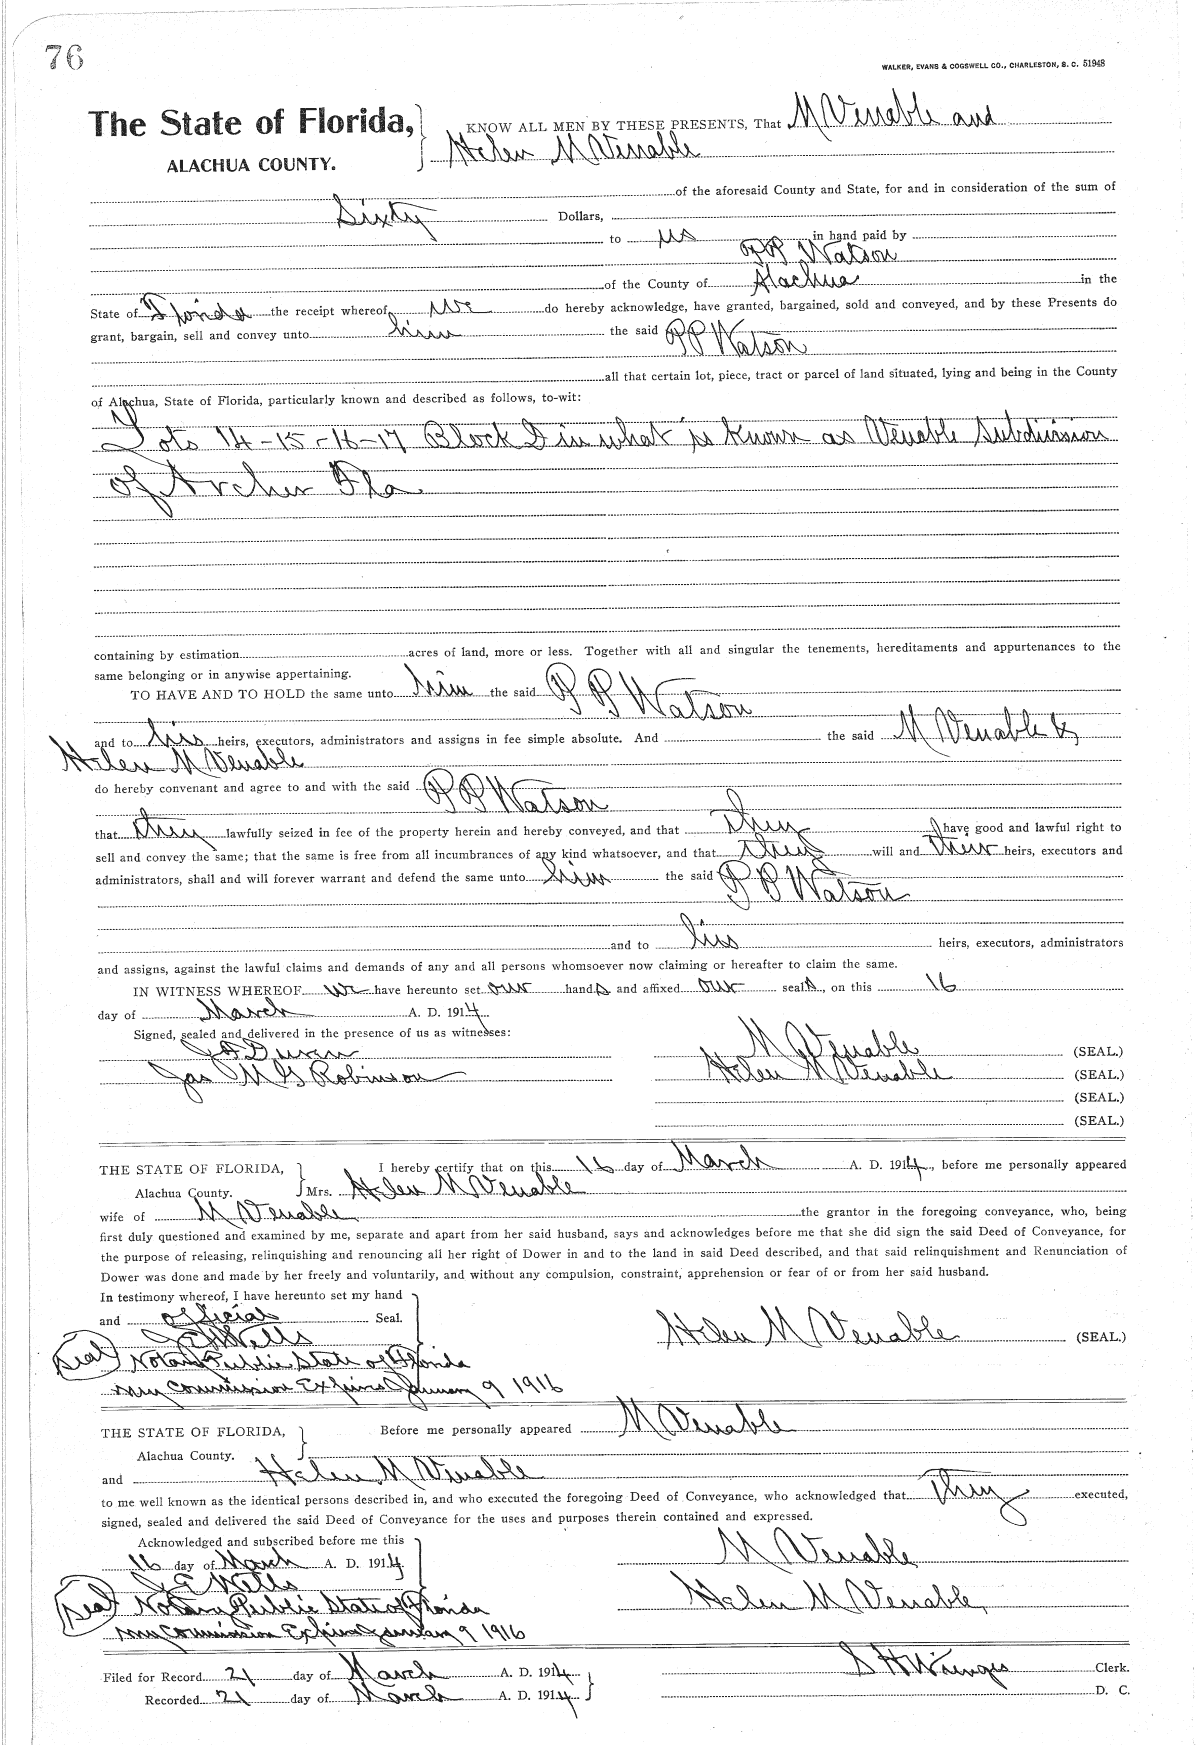 76
WALKER, EVANS & COGSWELL CO., CHARLESTON, S. C. 51948
The State of Florida, KNOW ALL MEN BY THESE PRESENTS, That M Venable and
ALACHUA COUNTY. Helen M Venable
of the aforesaid County and State, for and in consideration of the sum of
Sixty Dollars,
to us in hand paid by
P P Watson
of the County of Alachua in the
State of Florida the receipt whereof we do hereby acknowledge, have granted, bargained, sold and conveyed, and by these Presents do
grant, bargain, sell and convey unto him the said P P Watson
all that certain lot, piece, tract or parcel of land situated, lying and being in the County
of Alachua, State of Florida, particularly known and described as follows, to-wit:
Lots 14-15-16-17 Block in what is known as Venable Subdivision
of Archer Fla
containing by estimation acres of land, more or less. Together with all and singular the tenements, hereditaments and appurtenances to the
same belonging or in anywise appertaining.
TO HAVE AND TO HOLD the same unto him the said P P Watson
and to his heirs, executors, administrators and assigns in fee simple absolute. And the said M Venable &
Helen M Venable
do hereby convenant and agree to and with the said P P Watson
that they lawfully seized in fee of the property herein and hereby conveyed, and that they have good and lawful right to
sell and convey the same; that the same is free from all incumbrances of any kind whatsoever, and that they will and their heirs, executors and
administrators, shall and will forever warrant and defend the same unto him the said P P Watson
and to his heirs, executors, administrators
and assigns, against the lawful claims and demands of any and all persons whomsoever now claiming or hereafter to claim the same.
IN WITNESS WHEREOF we have hereunto set our hands and affixed our seals, on this 16
day of March A. D. 1914
Signed, sealed and delivered in the presence of us as witnesses:
M Venable (SEAL.)
Jas M G Robinson Helen M Venable (SEAL.)
(SEAL.)
(SEAL.)
THE STATE OF FLORIDA, I hereby certify that on this 16 day of March A. D. 1914, before me personally appeared
Alachua County. Mrs. Helen M Venable
wife of M Venable the grantor in the foregoing conveyance, who, being
first duly questioned and examined by me, separate and apart from her said husband, says and acknowledges before me that she did sign the said Deed of Conveyance, for
the purpose of releasing, relinquishing and renouncing all her right of Dower in and to the land in said Deed described, and that said relinquishment and Renunciation of
Dower was done and made by her freely and voluntarily, and without any compulsion, constraint, apprehension or fear of or from her said husband.
In testimony whereof, I have hereunto set my hand
and official Seal.
J E Wells Helen M Venable (SEAL.)
Seal Notary Public State of Florida
My Commission Expires January 9 1916
THE STATE OF FLORIDA, Before me personally appeared M Venable
Alachua County.
and Helen M Venable
to me well known as the identical persons described in, and who executed the foregoing Deed of Conveyance, who acknowledged that They executed,
signed, sealed and delivered the said Deed of Conveyance for the uses and purposes therein contained and expressed.
Acknowledged and subscribed before me this
16 day of March A. D. 1914. M Venable
J E Wells
Seal Notary Public State of Florida Helen M Venable
My Commission Expires January 9 1916
Filed for Record 21 day of March A. D. 1914 S H Wienges Clerk.
Recorded 21 day of March A. D. 1914 D. C.